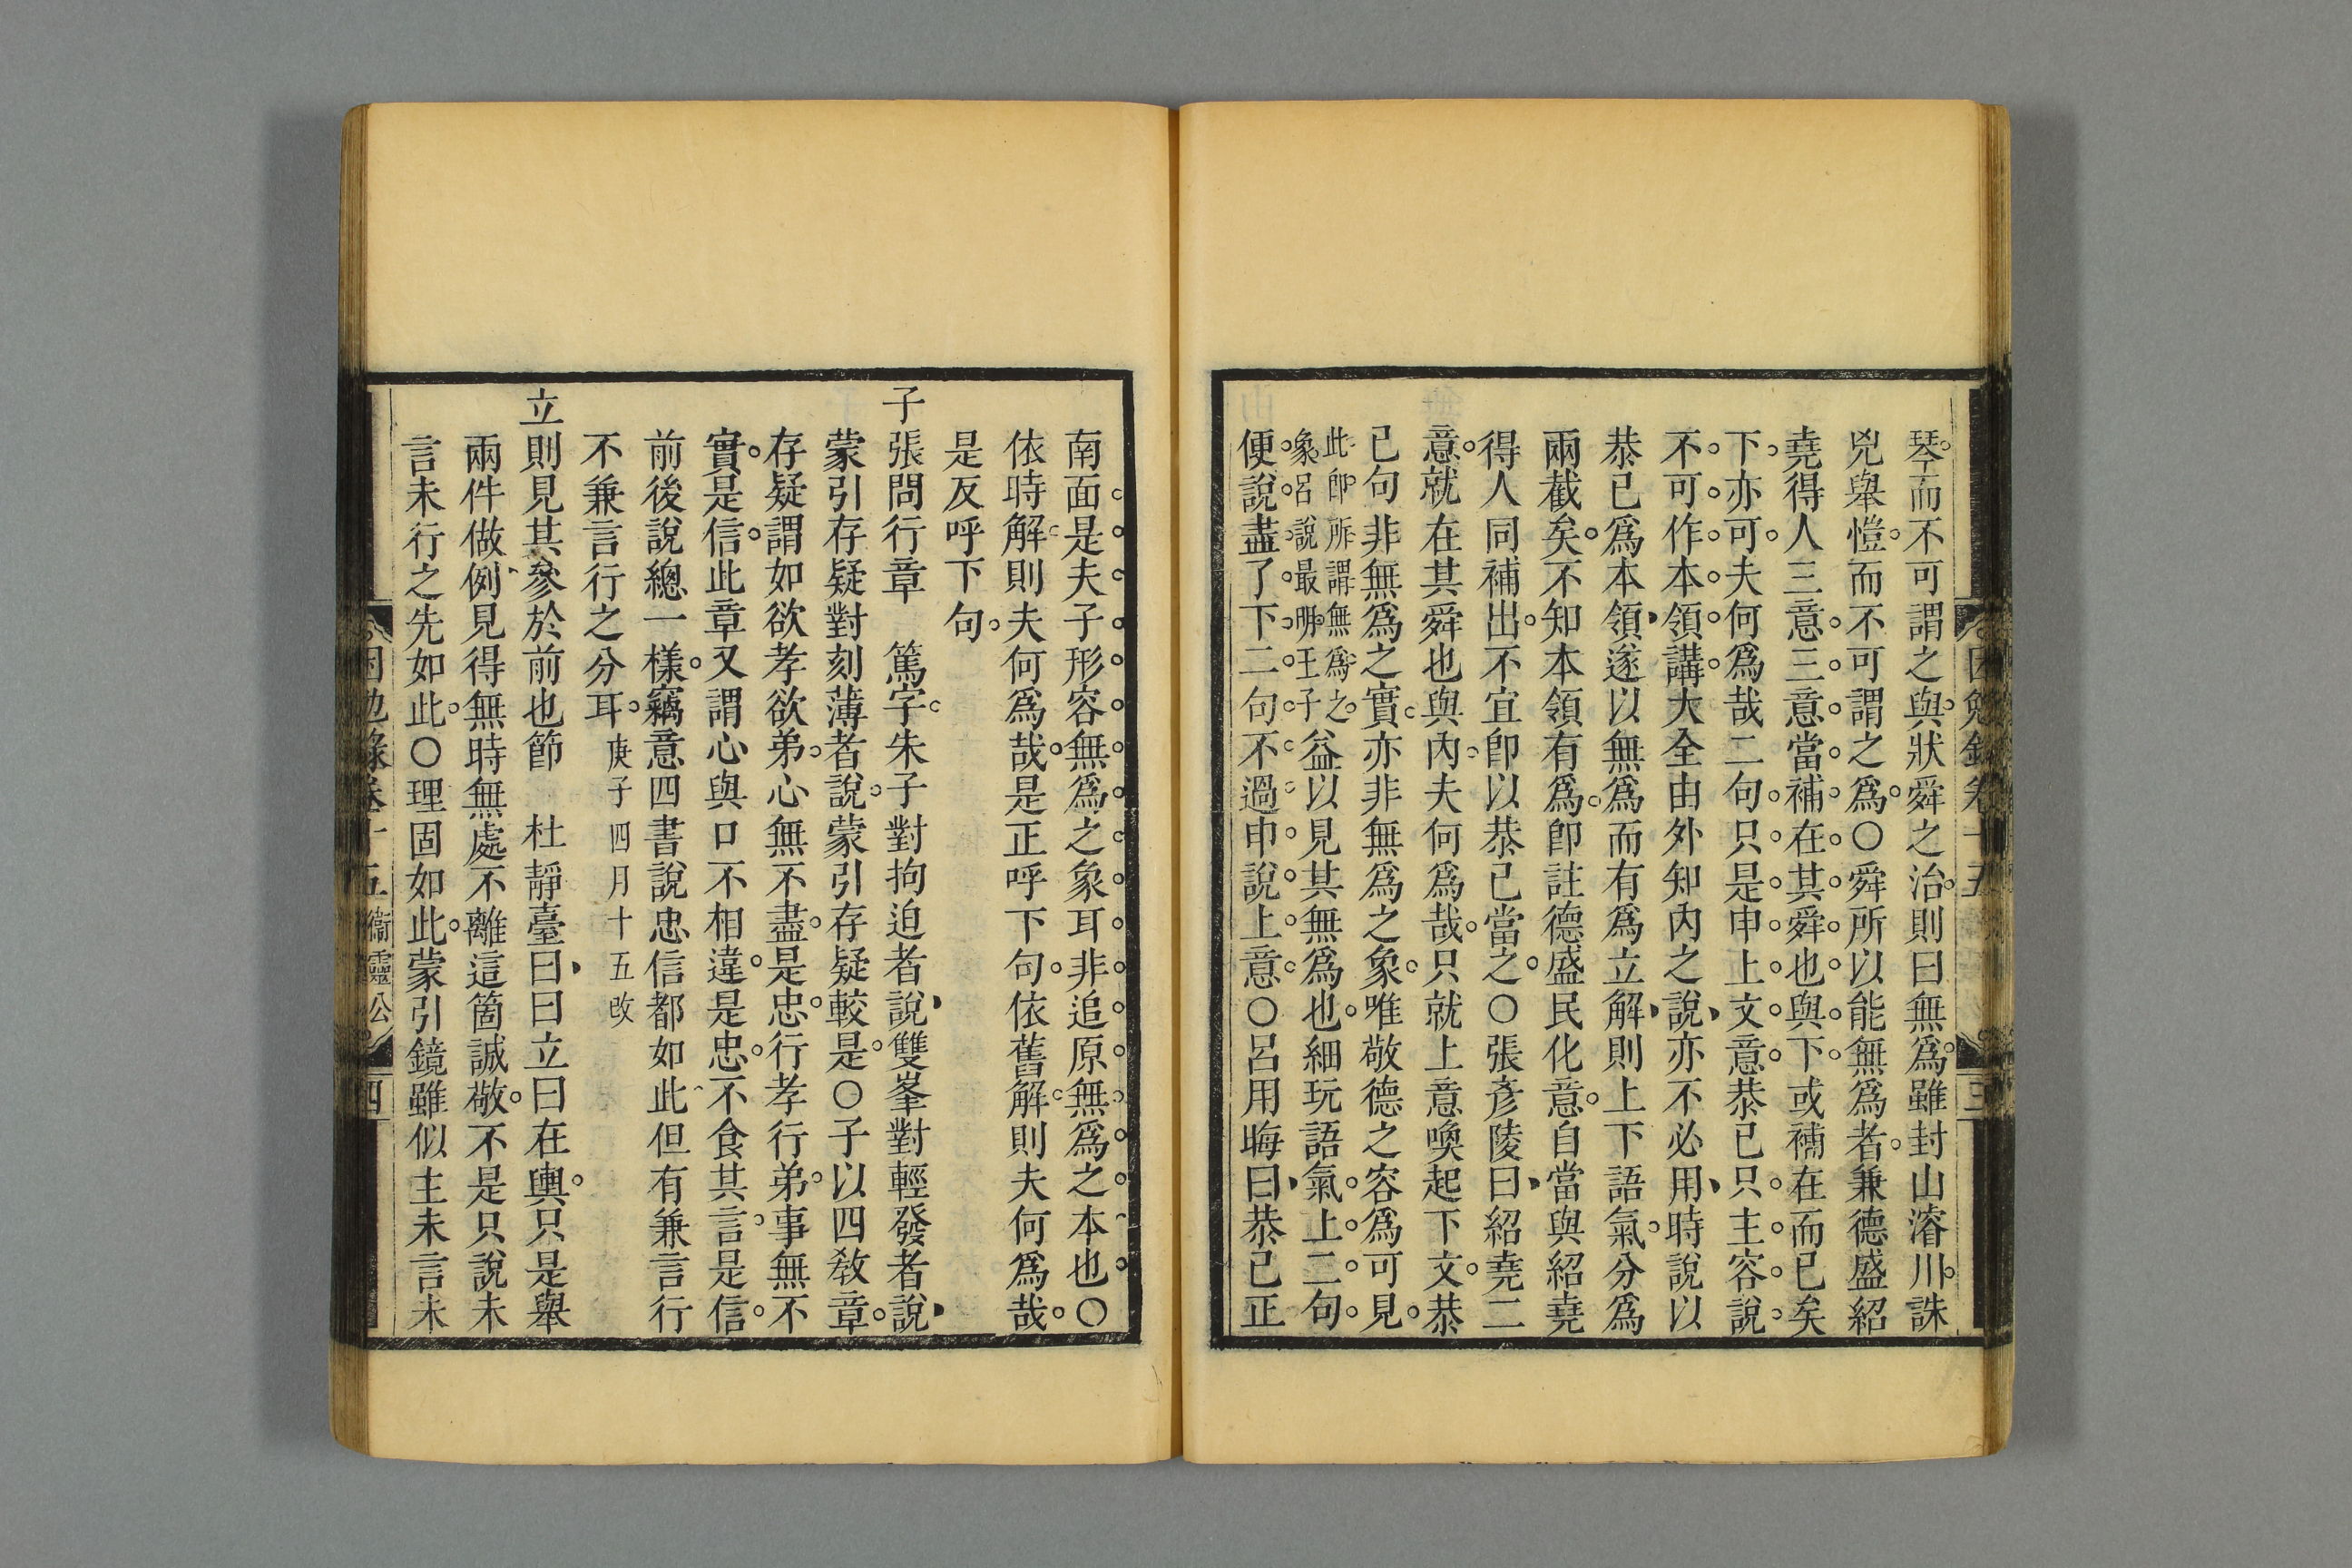 琴而不可謂之與狀舜之治則曰無爲雖封山濬川誅
兇舉愷而不可謂之爲○舜所以能無爲者兼德盛紹
堯得人三意三意當補在其舜也與下或補在而已矣
下亦可夫何爲哉二句只是申上文意恭已只主容說
不可作本領講大全由外知內之說亦不必用時說以
恭已爲本領遂以無爲而有爲立解則上下語氣分爲
兩截矣不知本領有爲卽註德盛民化意自當與紹堯
得人同補出不宜卽以恭已當之○張彥陵曰紹堯二
意就在其舜也與內夫何爲哉只就上意喚起下文恭
已句非無爲之實亦非無爲之象唯敬德之容爲可見
此卽所謂無爲之
象呂說最明王子益以見其無爲也細玩語氣上二句
便說盡了下二句不過申說上意○呂用晦曰恭已正
困勉錄卷十五
三
南面是夫子形容無爲之象耳非追原無爲之本也○
依時解則夫何爲哉是正呼下句依舊解則夫何爲哉
是反呼下句
子張問行章 篤字朱子對拘迫者說雙峯對輕發者說
蒙引存疑對刻薄者說蒙引存疑較是○子以四敎章
存疑謂如欲孝欲弟心無不盡是忠行孝行弟事無不
實是信此章又謂心與口不相違是忠不食其言是信
前後說總一樣竊意四書說忠信都如此但有兼言行
不兼言行之分耳庚子四月十五改
立則見其參於前也節 杜靜臺曰曰立曰在輿只是舉
兩件做例見得無時無處不離這箇誠敬不是只說未
言未行之先如此○理固如此蒙引鏡雖似主未言未
困勉錄卷十五 衞靈公
四